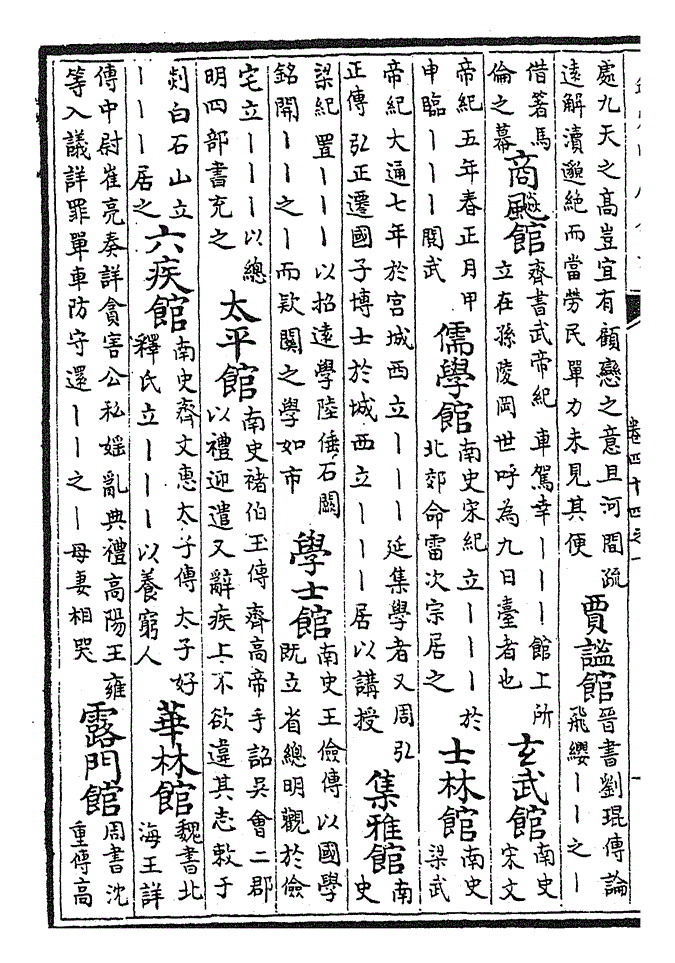 處九天之髙豈宜有顧戀之意且河間疏
遠解瀆邈絶而當勞民單力未見其便
賈謐館
晉書劉琨傳論
飛纓丨丨之丨
借箸馬
倫之幕
商飈館
齊書武帝紀 車駕幸丨丨丨館上所
立在孫陵岡世呼為九日臺者也
玄武館
南史
宋文
帝紀五年春正月甲
申臨丨丨丨閱武
儒學館
南史宋紀立丨丨丨於
北郊命雷次宗居之
士林館
南史
梁武
帝紀大通七年於宫城西立丨丨丨延集學者又周弘
正傳弘正遷國子博士於城西立丨丨丨居以講授
集雅館
南
史
梁紀置丨丨丨以招遠學陸倕石闕
銘開丨丨之丨而欵闗之學如市
學士館
南史王儉傳以國學
既立省總明觀於儉
宅立丨丨丨以總
明四部書充之
太平館
南史褚伯玉傳齊高帝手詔吳會二郡
以禮迎遣又辭疾上不欲違其志敕于
剡白石山立
丨丨丨居之
六疾館
南史齊文惠太子傳太子好
釋氏立丨丨丨以養窮人
華林館
魏書北
海王詳
傳中尉崔亮奏詳貪害公私媱亂典禮高陽王雍
等入議詳罪單車防守還丨丨之丨母妻相哭
露門館
周書沈
重傳高